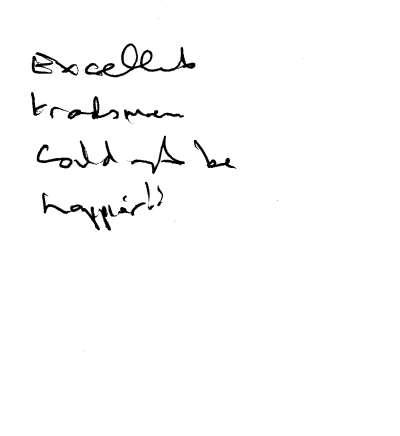 Excellent
tradsmen
Could not be
happier!!